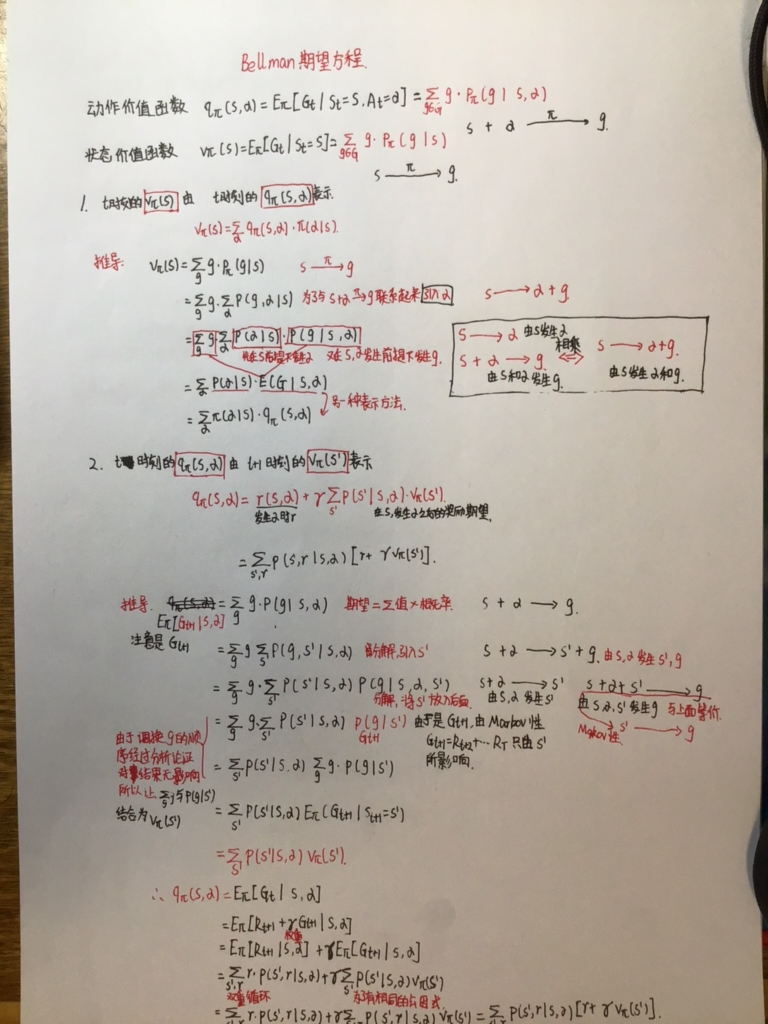 Bellman 期望方程.
动作价值函数 qπ(s,a) = Eπ[Gt | St=s, At=a] = Σ_{g∈G} g·Pπ(g | s,a)
s + a —π→ g.
状态价值函数 vπ(s) = Eπ[Gt | St=s] = Σ_{g∈G} g·Pπ(g|s)
s —π→ g.
1. t时刻的 vπ(s) 由 t时刻的 qπ(s,a) 表示.
vπ(s) = Σ_a qπ(s,a)·π(a|s).
推导: vπ(s) = Σ_g g·Pπ(g|s) s —π→ g
= Σ_g g·Σ_a P(g,a|s) 为了与 s+a —π→ g 联系起来 引入a s → a+g
= Σ_g g Σ_a P(a|s)·P(g|s,a)
在s前提下发生a 又在s,a发生前提下发生g.
s → a 由s发生a
相乘
s + a → g. ⇔ s → a+g.
由s和a发生g. 由s发生a和g.
= Σ_a P(a|s)·E(G|s,a)
另一种表示方法.
= Σ_a π(a|s)·qπ(s,a)
2. t时刻的 qπ(s,a) 由 t+1时刻的 vπ(s') 表示
qπ(s,a) = r(s,a) + γ Σ_{s'} P(s'|s,a)·vπ(s').
发生a时r 由s,发生a之后的奖励期望.
= Σ_{s',r} P(s',r|s,a) [r + γ vπ(s')].
推导. qπ(s,a) = Σ_g g·P(g|s,a) 期望=Σ值×概率 s + a → g.
Eπ[Gt+1|s,a]
注意是 Gt+1 = Σ_g g Σ_{s'} P(g,s'|s,a) 分解,引入s' s + a → s' + g. 由s,a发生s',g
= Σ_g g·Σ_{s'} P(s'|s,a) P(g|s,a,s') s+a → s' s+a+s' → g
分解,将s'放入后面 由s,a发生s' 由s,a,s'发生g 与上面等价.
= Σ_g g·Σ_{s'} P(s'|s,a) P(g|s') 由于是 Gt+1, 由 Markov 性
Gt+1 Gt+1=Rt+2+…RT 只由s'
所影响.
Markov性. s' → g
由于调换g的顺
序经过分析论证
对结果无影响
所以让 Σ_g g与P(g|s')
结合为 vπ(s')
= Σ_{s'} P(s'|s,a) Σ_g g·P(g|s')
= Σ_{s'} P(s'|s,a) Eπ(Gt+1|St+1=s')
= Σ_{s'} P(s'|s,a) vπ(s').
∴ qπ(s,a) = Eπ[Gt | s,a]
= Eπ[Rt+1 + γGt+1 | s,a]
= Eπ[Rt+1|s,a] + γEπ[Gt+1|s,a]
= Σ_{s',r} r·P(s',r|s,a) + γΣ_{s'} P(s'|s,a) vπ(s')
双重循环
= Σ_{s',r} r·P(s',r|s,a) + γΣ P(s',r|s,a) vπ(s') = Σ_{s',r} P(s',r|s,a) [r + γ vπ(s')].